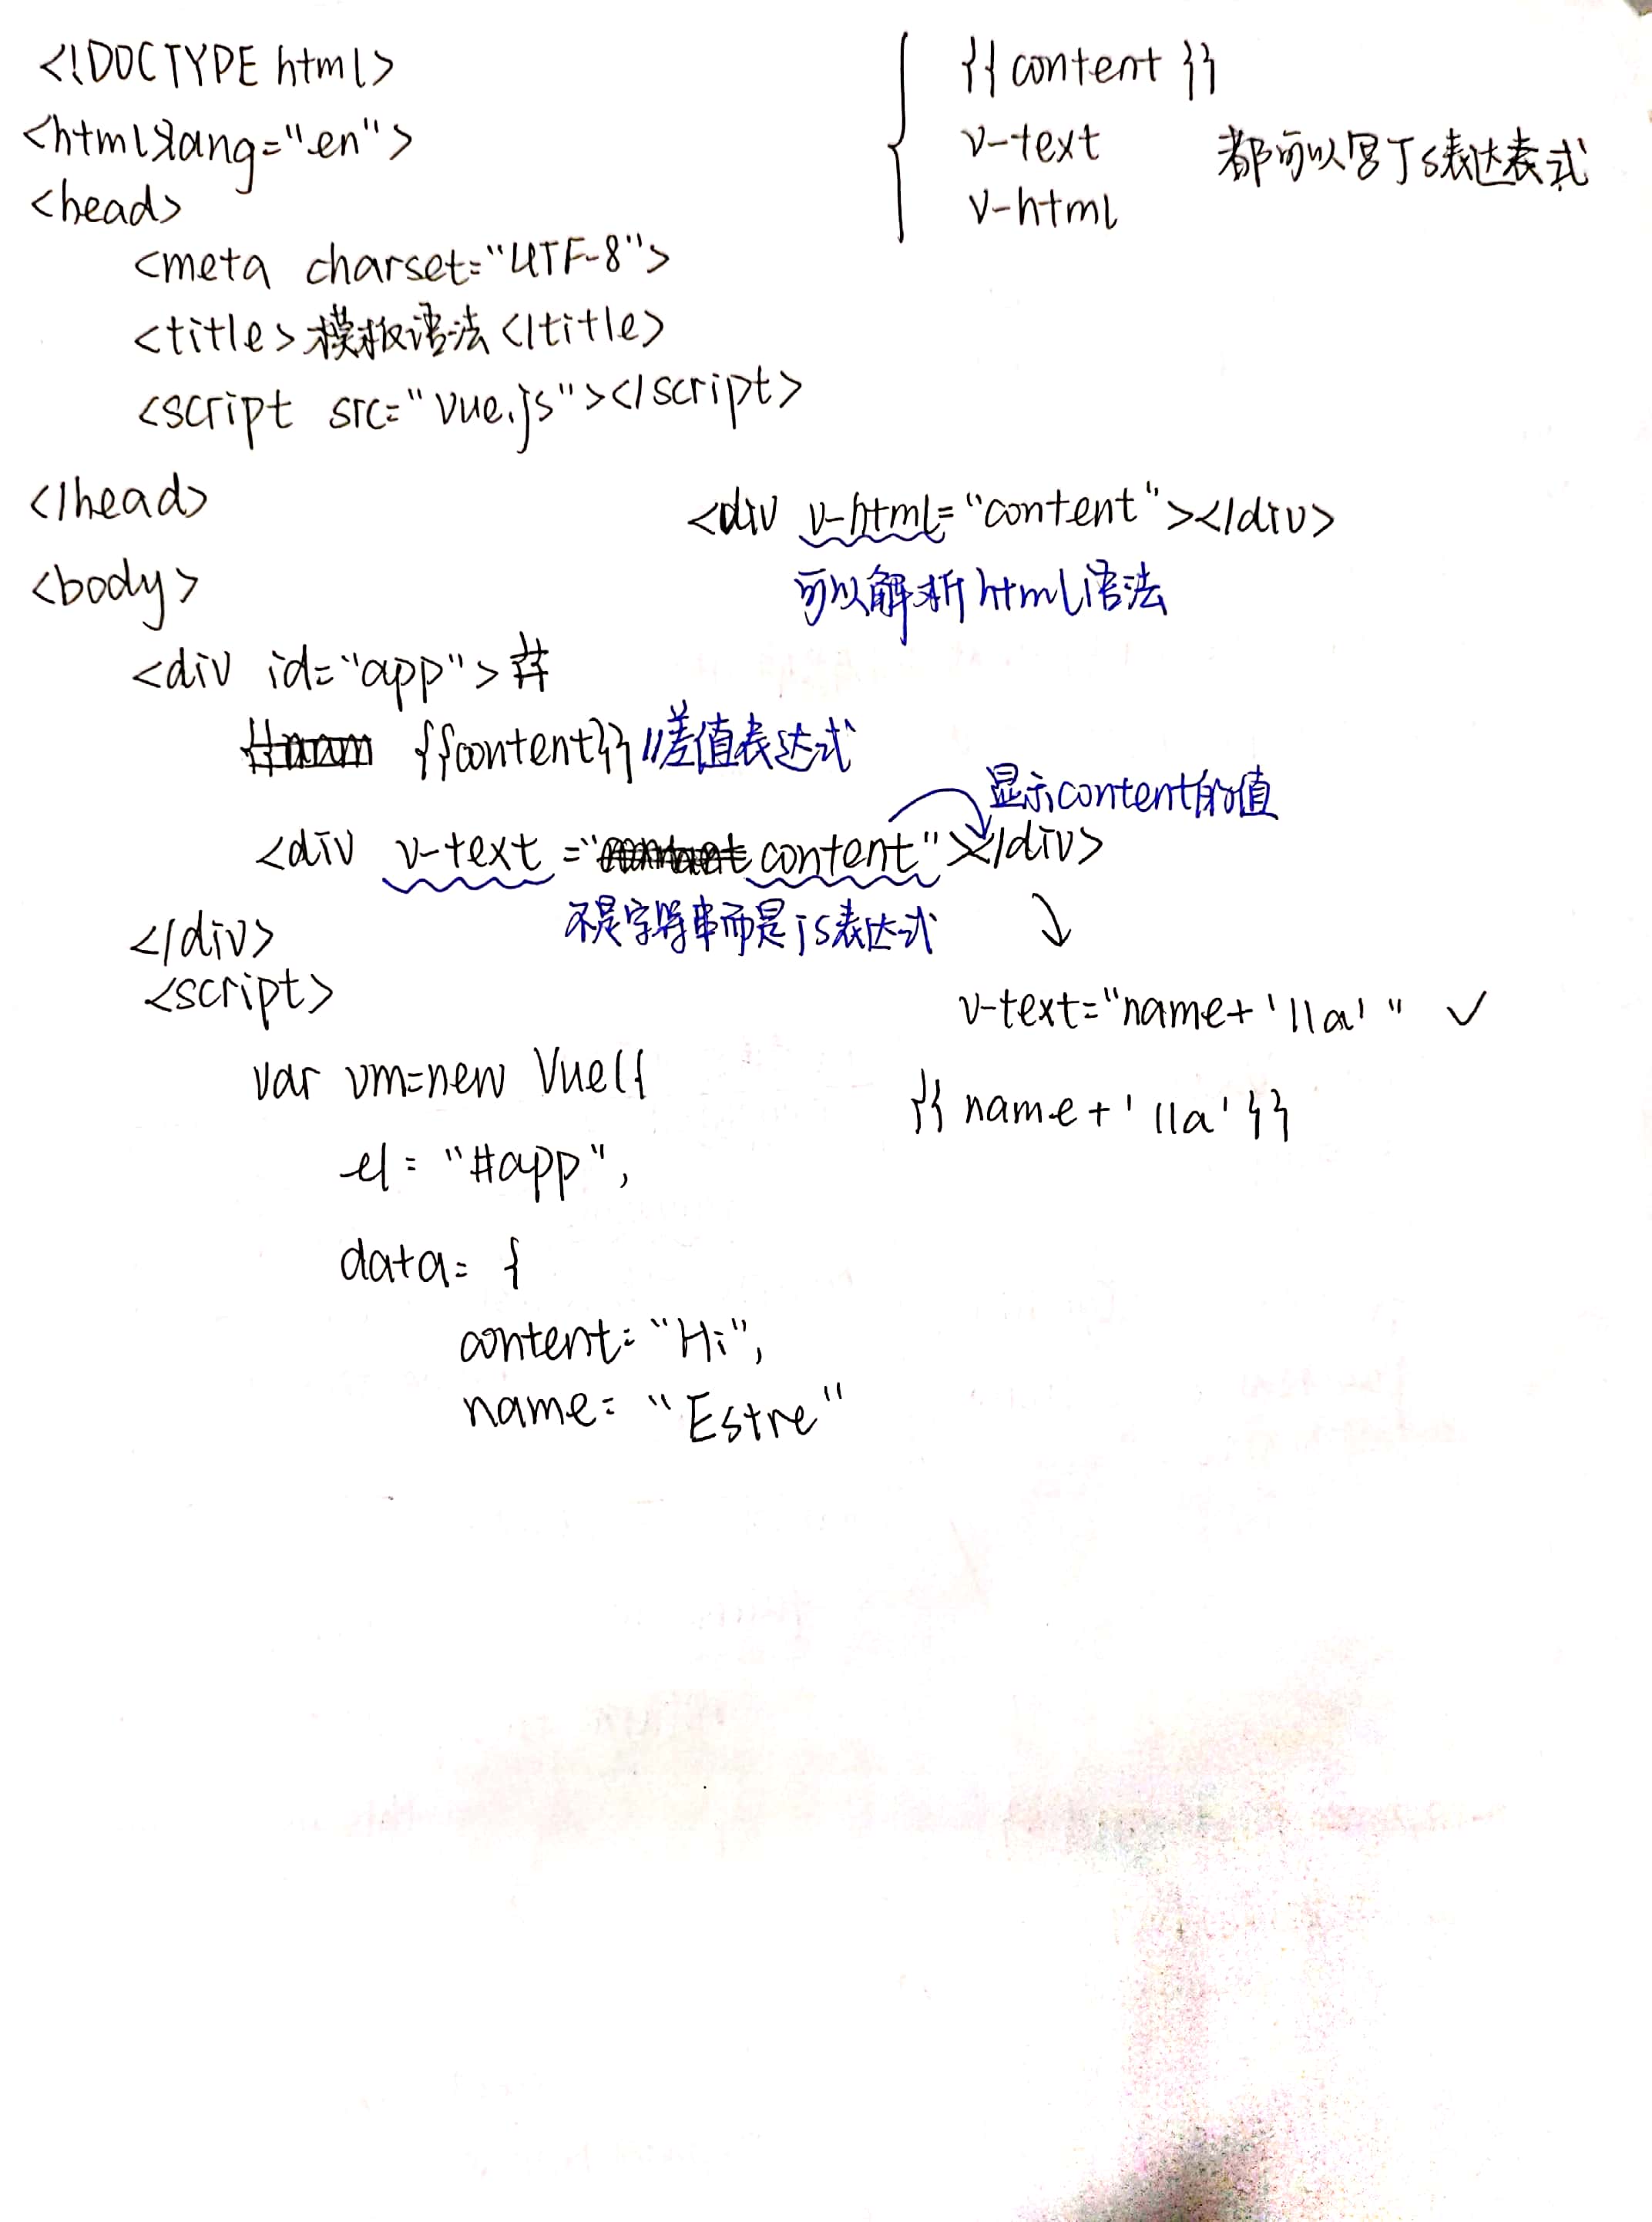 <!DOCTYPE html>
<html lang="en">
<head>
<meta charset="UTF-8">
<title>模板语法</title>
<script src="vue.js"></script>
</head>
<body>
<div id="app">
{{content}} //差值表达式
显示content的值
<div v-text="content"></div>
不是字符串而是js表达式
</div>
<script>
var vm=new Vue({
el: "#app",
data: {
content: "Hi",
name: "Estre"
{{content}}
v-text
v-html
都可以写JS表达表式
<div v-html="content"></div>
可以解析html语法
v-text="name+'lla'" ✓
{{name+'lla'}}